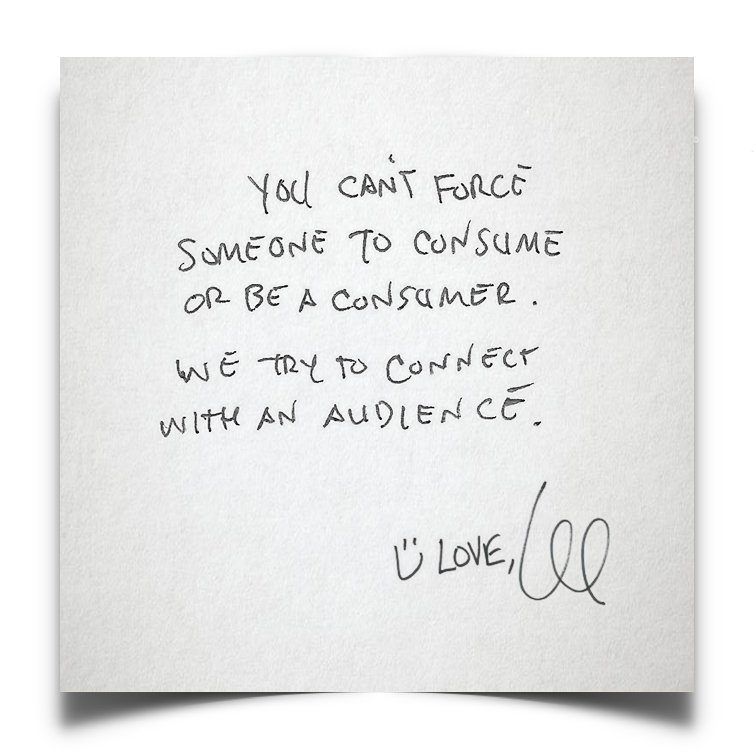 YOU CAN'T FORCE
SOMEONE TO CONSUME
OR BE A CONSUMER.
WE TRY TO CONNECT
WITH AN AUDIENCE.
LOVE, Lee